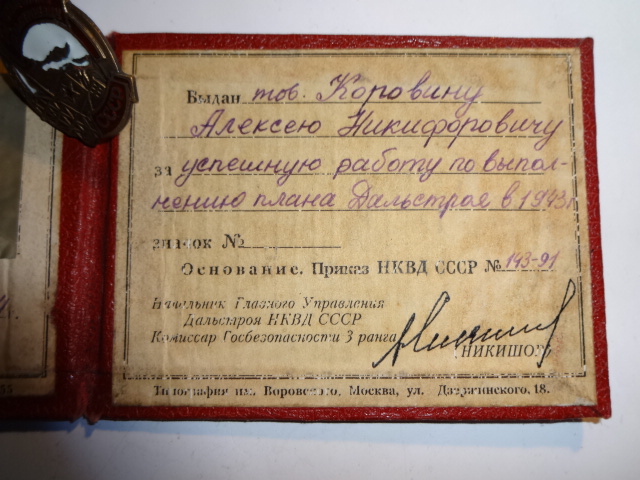 Выдан тов. Коровину
Алексею Никифоровичу
за успешную работу по выпол-
нению плана Дальстроя в 1943 г.
значок №
Основание. Приказ НКВД СССР № 143-91
Начальник Главного Управления
Дальстроя НКВД СССР
Комиссар Госбезопасности 3 ранга
(НИКИШОВ)
Типография им. Воровского, Москва, ул. Дзержинского, 18.